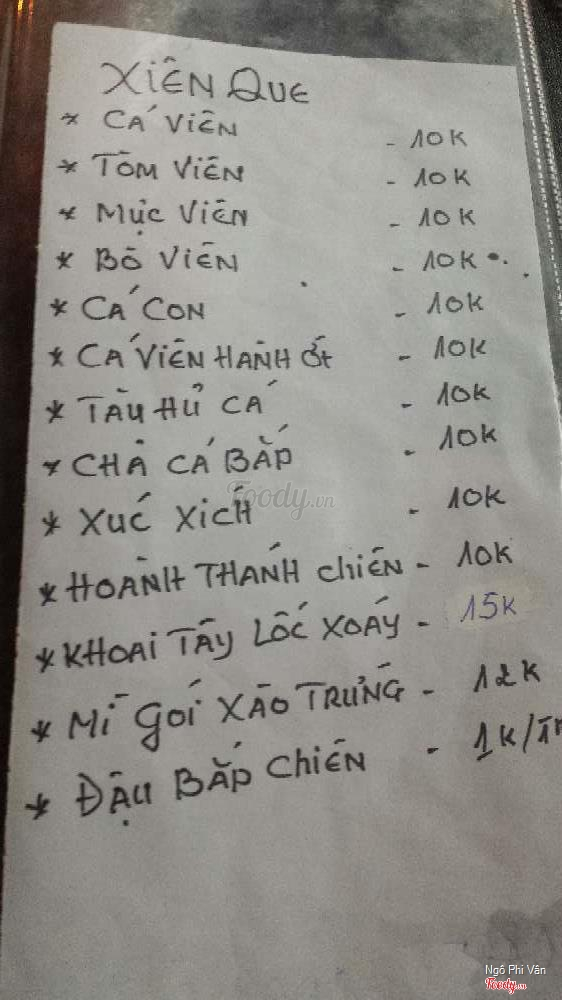 XIÊN QUE
* CÁ VIÊN - 10K
* TÔM VIÊN - 10K
* MỰC VIÊN - 10K
* BÒ VIÊN - 10K
* CÁ CON - 10K
* CÁ VIÊN HÀNH ỚT - 10K
* TÀU HỦ CÁ - 10K
* CHẢ CÁ BẮP - 10K
* XÚC XÍCH - 10K
* HOÀNH THÁNH chiÊN - 10K
* KHOAI TÂY LỐC XOÁY - 15K
* MÌ GÓI XÀO TRỨNG - 12K
* ĐẬU BẮP ChiÊN - 1K/1
Foody.vn
Ngô Phi Vân
Foody.vn